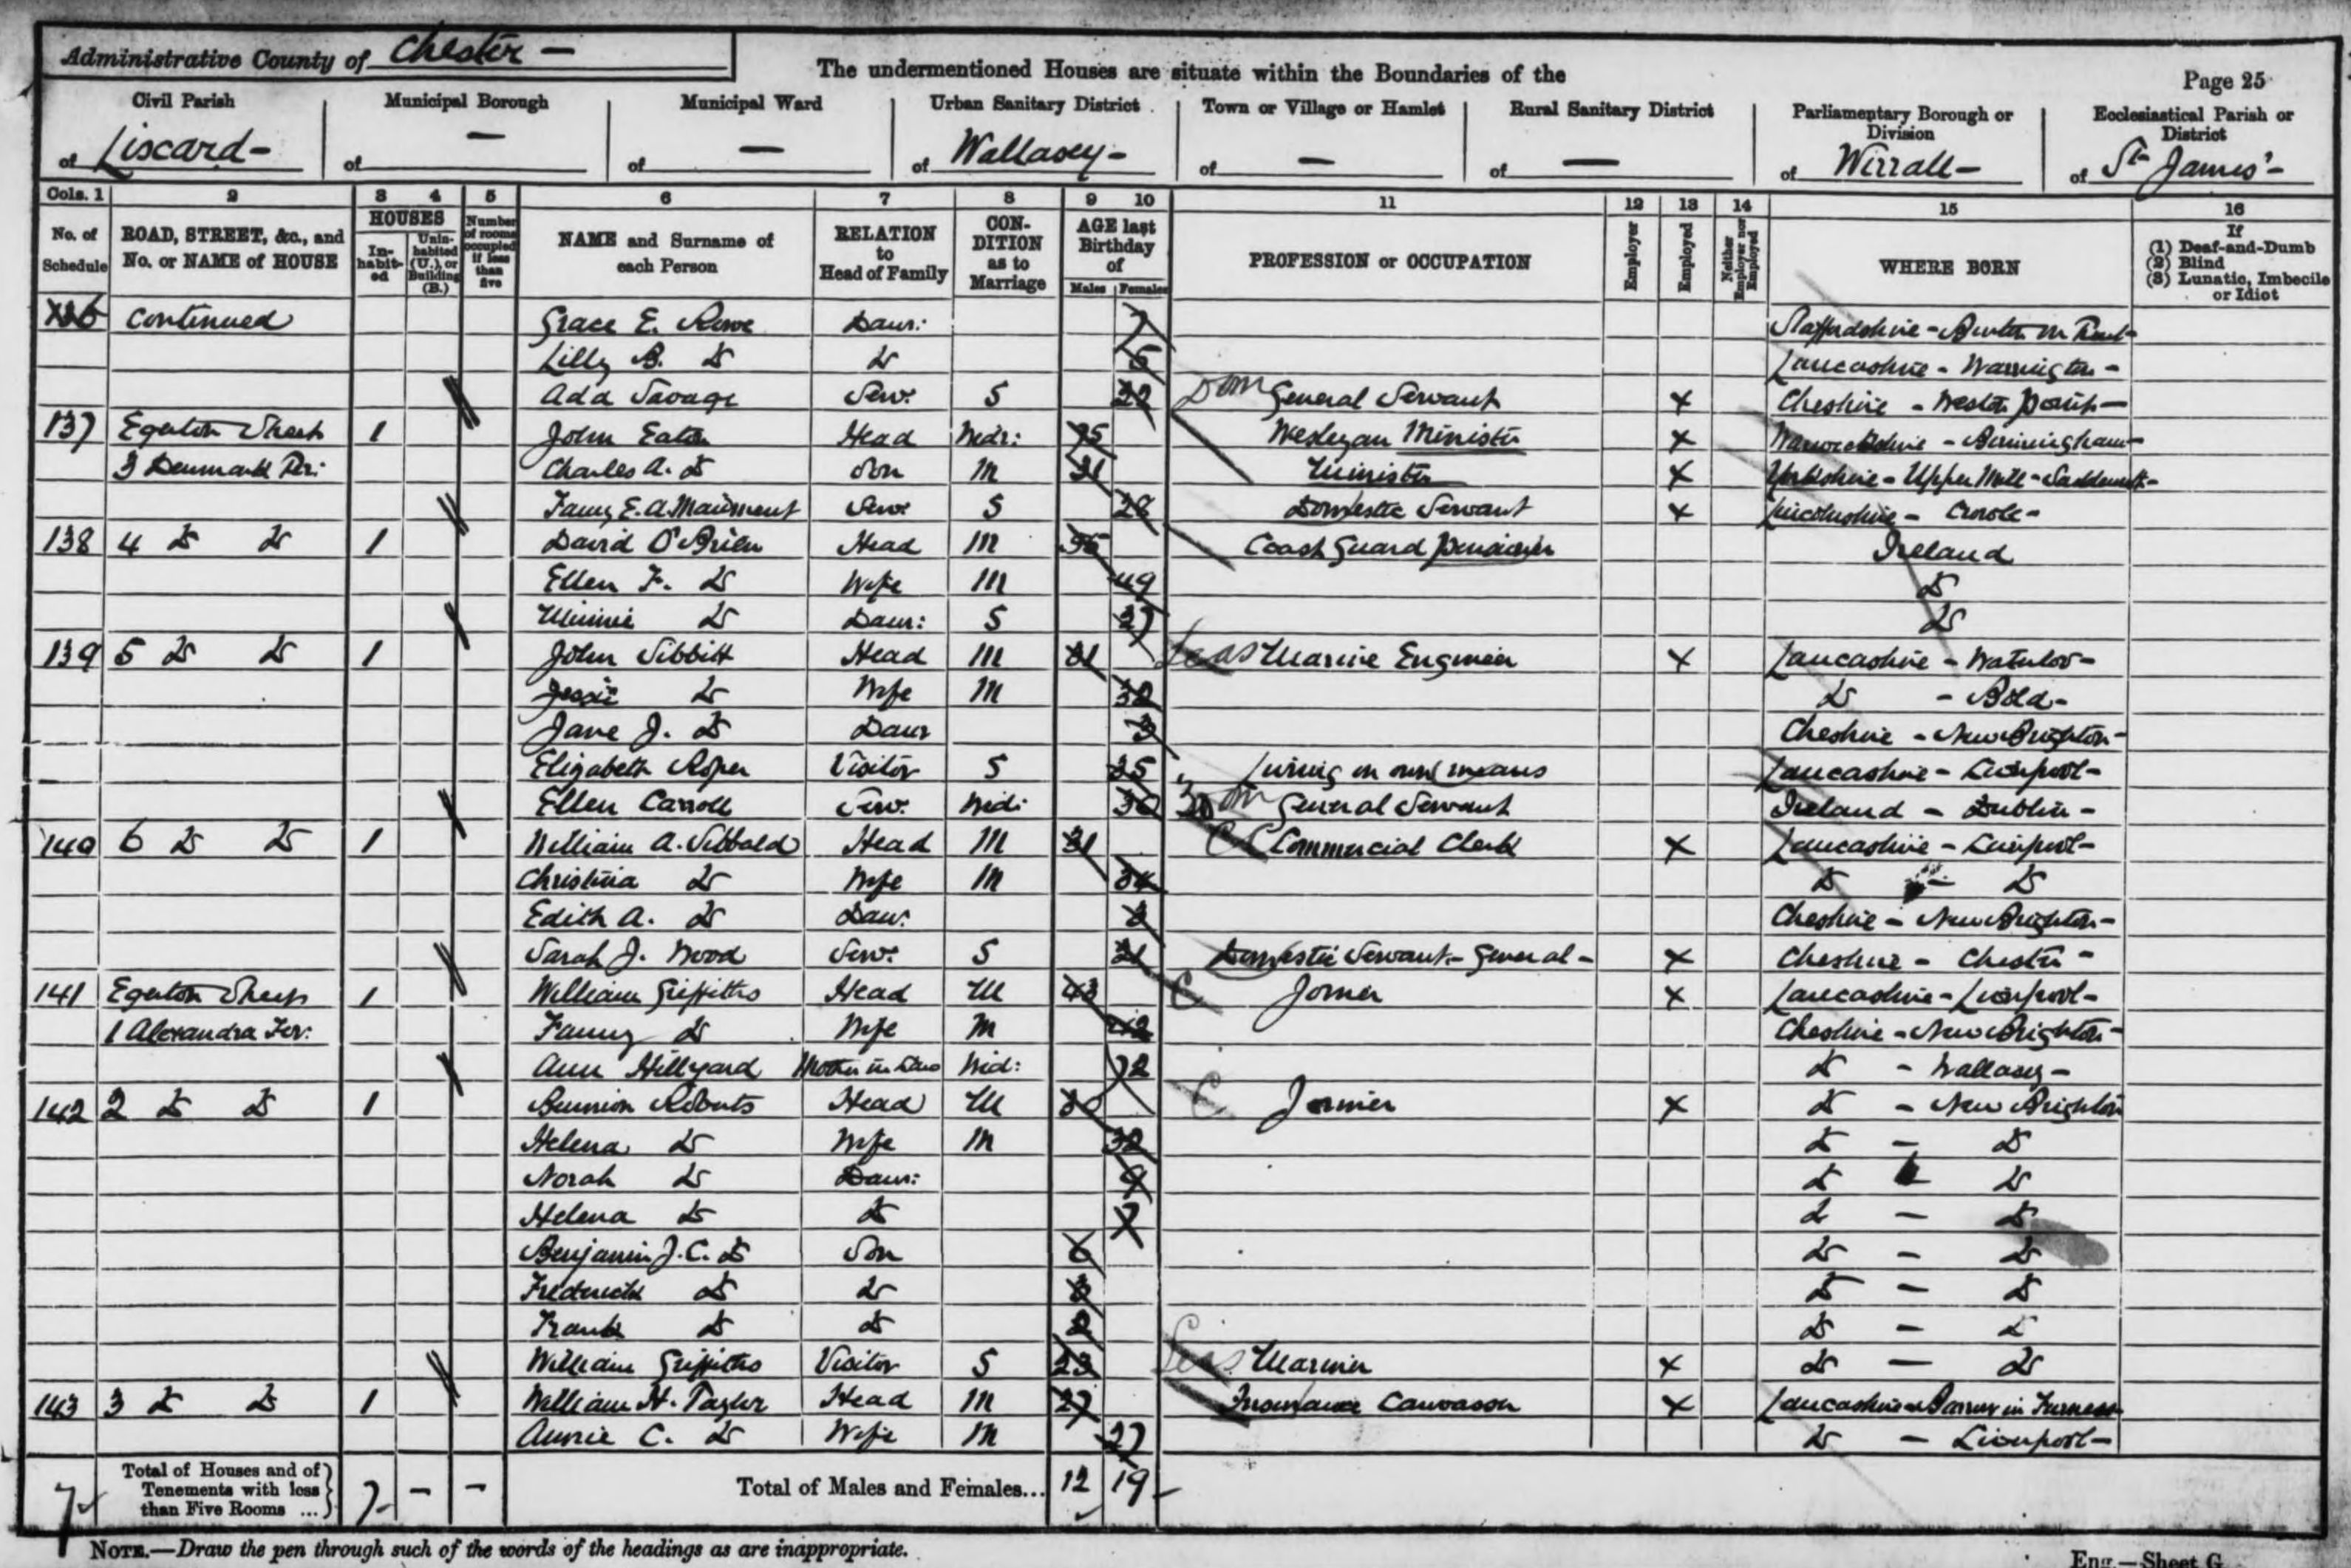 Administrative County of Chester –
The undermentioned Houses are situate within the Boundaries of the
Page 25
Civil Parish
of Liscard –
Municipal Borough
of –
Municipal Ward
of –
Urban Sanitary District
of Wallasey –
Town or Village or Hamlet
of –
Rural Sanitary District
of –
Parliamentary Borough or Division
of Wirrall –
Ecclesiastical Parish or District
of St James' –
Cols. 1 2 3 4 5 6 7 8 9 10 11 12 13 14 15 16
No. of Schedule
ROAD, STREET, &c., and No. or NAME of HOUSE
HOUSES
In-habit-ed
Unin-habited (U.), or Building (B.)
Number of rooms occupied if less than five
NAME and Surname of each Person
RELATION to Head of Family
CON-DITION as to Marriage
AGE last Birthday of
Males Females
PROFESSION or OCCUPATION
Employer
Employed
Neither Employer nor Employed
WHERE BORN
If
(1) Deaf-and-Dumb
(2) Blind
(3) Lunatic, Imbecile or Idiot
continued Grace E. Rowe Daur: 7 Staffordshire – Burton on Trent –
Lilly B. Do Do 5 Lancashire – Warrington –
Ada Savage Serv: S 22 Dom General Servant X Cheshire – Weston Point –
137 Egerton Street 1 John Eaton Head Widr: 75 Wesleyan Minister X Warwickshire – Birmingham –
3 Denmark Ter: Charles A. Do Son M 31 Minister X Yorkshire – Upper Mill – Saddleworth –
Fanny E. A. Serv: S 28 Domestic Servant X Lincolnshire – Crowle –
138 4 Do Do 1 David O'Brien Head M 56 Coast Guard Pensioner Ireland
Ellen F. Do Wife M 49 Do
Minnie Do Daur: S 27 Do
139 5 Do Do 1 John Sibbitt Head M 31 Seas Marine Engineer X Lancashire – Waterloo –
Jessie Do Wife M 32 Do – Bold –
Jane J. Do Daur 3 Cheshire – New Brighton –
Elizabeth Roper Visitor S 25 Living on own means Lancashire – Liverpool –
Ellen Carroll Serv: Wid: 30 Dom General Servant Ireland – Dublin –
140 6 Do Do 1 William A. Sibbald Head M 31 CC Commercial Clerk X Lancashire – Liverpool –
Christina Do Wife M 34 Do – Do
Edith A. Do Daur: Cheshire – New Brighton –
Sarah J. Wood Serv: S 21 Domestic Servant – General – X Cheshire – Chester –
141 Egerton Street 1 William Griffiths Head M 43 C Joiner X Lancashire – Liverpool –
1 Alexandra Ter: Fanny Do Wife M 42 Cheshire – New Brighton –
Ann Hillyard Mother in Law Wid: 72 Do – Wallasey –
142 2 Do Do 1 Roberts Head M 30 C Joiner X Do – New Brighton
Helena Do Wife M 32 Do – Do
Norah Do Daur: 9 Do Do
Helena Do Do 7 Do – Do
Benjamin J. C. Do Son 6 Do – Do
Frederick Do Do 3 Do – Do
Frank Do Do 2 Do – Do
William Griffiths Visitor S 23 Seas Mariner X Do – Do
143 3 Do Do 1 William H. Taylor Head M 27 Insurance Canvasser X Lancashire – Barrow in Furness
Annie C. Do Wife M 27 Do – Liverpool –
7 Total of Houses and of Tenements with less than Five Rooms ... 7 – –
Total of Males and Females... 12 19 –
NOTE.—Draw the pen through such of the words of the headings as are inappropriate.
Eng.—Sheet G